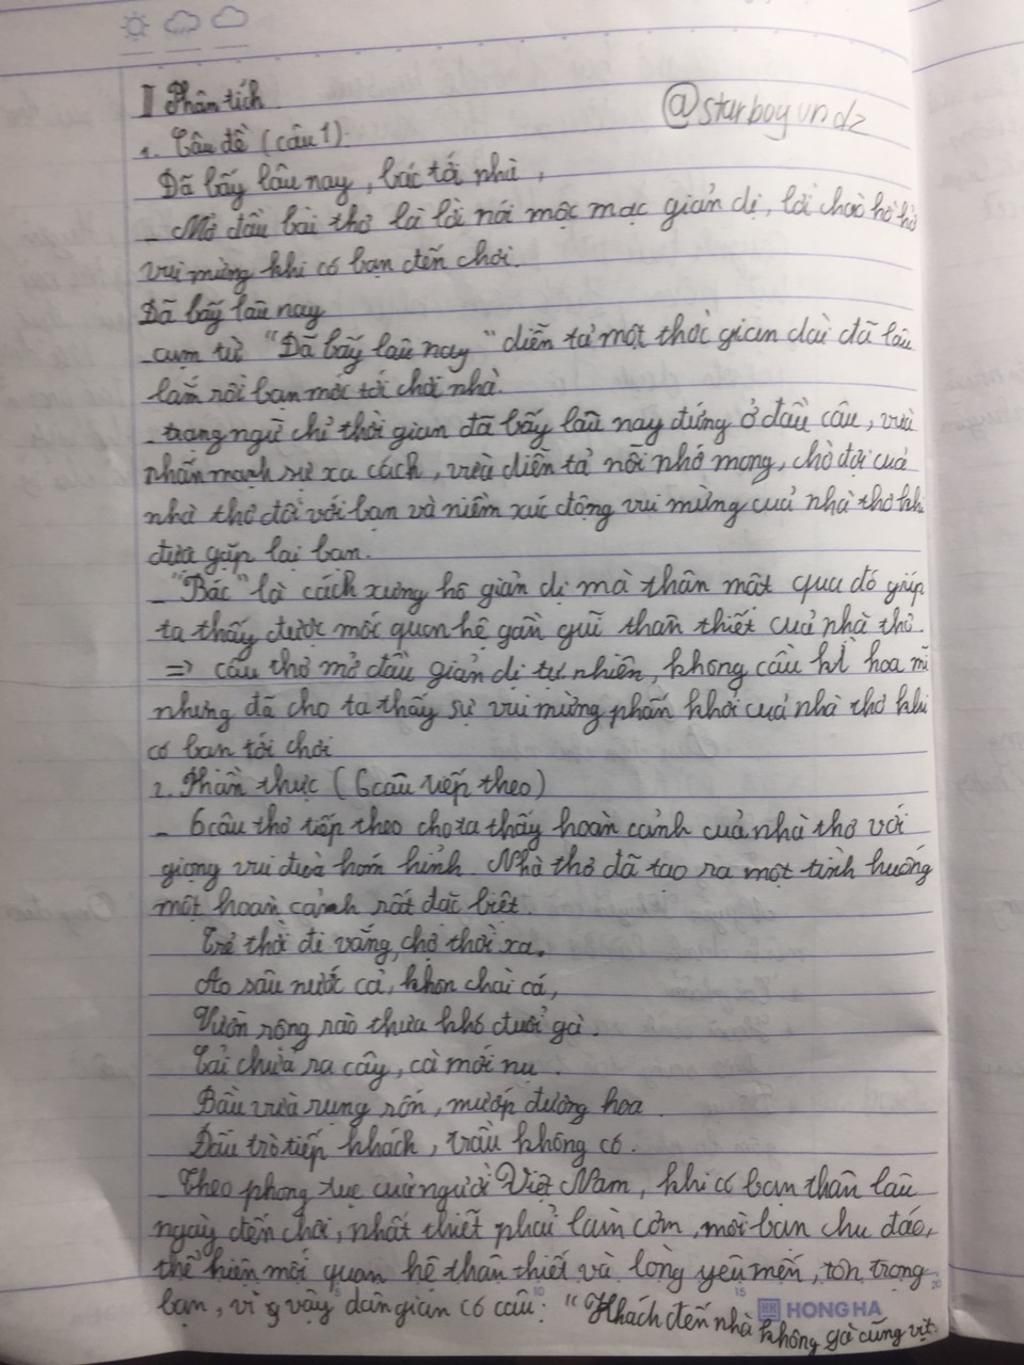 II Phân tích
@starboyundz
1. Câu đề (câu 1).
Đã bấy lâu nay, bác tới nhà,
- Mở đầu bài thơ là lời nói mộc mạc giản dị, lời chào hồ hởi
vui mừng khi có bạn đến chơi.
Đã bấy lâu nay
- cụm từ "Đã bấy lâu nay" diễn tả một thời gian dài đã lâu
lắm rồi bạn mới tới chơi nhà.
- trạng ngữ chỉ thời gian đã bấy lâu nay đứng ở đầu câu, vừa
nhấn mạnh sự xa cách, vừa diễn tả nỗi nhớ mong, chờ đợi của
nhà thơ đối với bạn và niềm xúc động vui mừng của nhà thơ khi
đưa gặp lại bạn.
- "Bác" là cách xưng hô giản dị mà thân mật qua đó giúp
ta thấy được mối quan hệ gần gũi thân thiết của nhà thơ.
=> câu thơ mở đầu giản dị tự nhiên, không cầu kì hoa mĩ
nhưng đã cho ta thấy sự vui mừng phấn khởi của nhà thơ khi
có bạn tới chơi
2. Phần thực (6 câu tiếp theo)
- 6 câu thơ tiếp theo cho ta thấy hoàn cảnh của nhà thơ với
giọng vui đùa hóm hỉnh. Nhà thơ đã tạo ra một tình huống
một hoàn cảnh rất đặc biệt.
Trẻ thời đi vắng, chợ thời xa.
Ao sâu nước cả, khôn chài cá,
Vườn rộng rào thưa khó đuổi gà.
Cải chửa ra cây, cà mới nụ.
Bầu vừa rụng rốn, mướp đương hoa.
Đầu trò tiếp khách, trầu không có.
- Theo phong tục của người Việt Nam, khi có bạn thân lâu
ngày đến chơi, nhất thiết phải làm cơm, mời bạn chu đáo,
thể hiện mối quan hệ thân thiết và lòng yêu mến, tôn trọng
bạn, vì vậy dân gian có câu: "Khách đến nhà không gà cũng vịt.
HONG HA